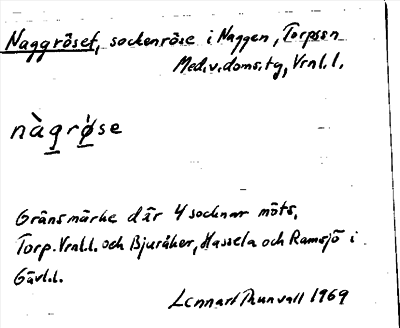 Naggröset, sockenröse i Naggen, Torpssn
Med.v.doms.tg, Vrnl.l.
nàgrǿse
Gränsmärke där 4 socknar möts,
Torp. Vrnl.l. och Bjuråker, Hassela och Ramsjö i
Gävl.l.
Lennart Thunvall 1969